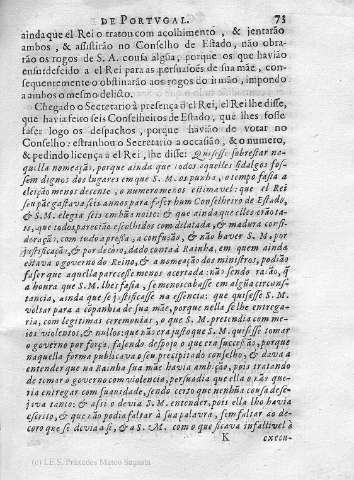 DE PORTVGAL. 73
ainda que el Rei o tratou com acolhimento, & jentarão
ambos, & assistirão no Conselho de Estado, não obra-
rão os rogos de S. A. cousa algũa, porque os que havião
ensurdecido a el Rei para as persuasoẽs de sua mãe, con-
sequentemente o obstinarão aos rogos do irmão, impondo
a ambos o mesmo delicto.
Chegado o Secretario à presença d el Rei, el Rei lhe disse,
que havia feito seis Conselheiros de Estado, que lhes fosse
fazer logo os despachos, porque havião de votar no
Conselho: estranhou o Secretario a occasião, & o numero,
& pedindo licença a el Rei, lhe disse: Quisesse sobrestar na-
quella nomeação, porque ainda que todos aquelles fidalgos fos-
sem dignos dos lugares em que S. M. os punha, o tempo fasia a
eleição menos decente, o numero menos estimavel: que el Rei
seu pãe gastava seis annos para faser hum Conselheiro de Estado,
& S. M. elegia seis em hũa noite: & que ainda que elles erão ta-
es, que todos parecião escolhidos com dilatada, & madura consi-
deração, com tudo a pressa, a confusão, & não haver S. M. por
justificação, & por decoro, dado conta à Rainha, em quem ainda
estava o governo do Reino, & a nomeação dos ministros, podião
faser que aquella parecesse menos acertada: não sendo raSão, q̃
a honra que S. M. lhes fasia, se menoscabasse em algũa circuns-
tancia, ainda que se justificasse na essencia: que quisesse S. M.
voltar para a cõpanhia de sua mãe, porque nella se lhe entrega-
ria, com legitimas ceremonias, o que S. M. pretendia com me-
ios violentos, & nullos: que não era justo que S. M. quisesse tomar
o governo por força, fasendo despojo o que era successão, porque
naquella forma publicava o seu precipitado conselho, & dava a
entender que na Rainha sua mãe havia ambição, pois tratando
de tomar o governo com violencia, persuadia que ella o não que-
ria entregar com suavidade, sendo certo que nenhũa cousa dese-
java tanto: & assi o devia S. M. entender, pois ella lho havia
escrito, & que não podia faltar à sua palavra, sem faltar ao de-
coro que se devia a si, & a S. M. com o que ficava infallivel à
K execu-
(c) I.E.S. Práxedes Mateo Sagasta